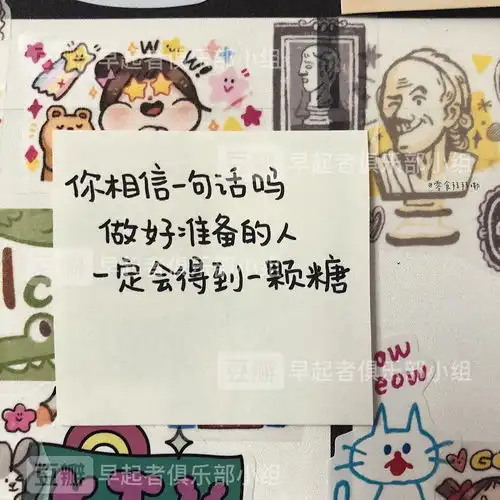 WOW!
豆瓣 早起者俱乐部小组
你相信一句话吗
做好准备的人
一定会得到一颗糖
豆瓣 早起者俱乐部小组
meow
豆瓣 早起者俱乐部小组